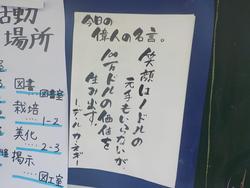 活動
場所
図書
図書室
栽培
1-2
美化
2-3
掲示
図工室
今日の
偉人の名言。
笑顔は1ドルの
元手もいらないが、
100万ドルの価値を
生み出す。
－デール カーネギー